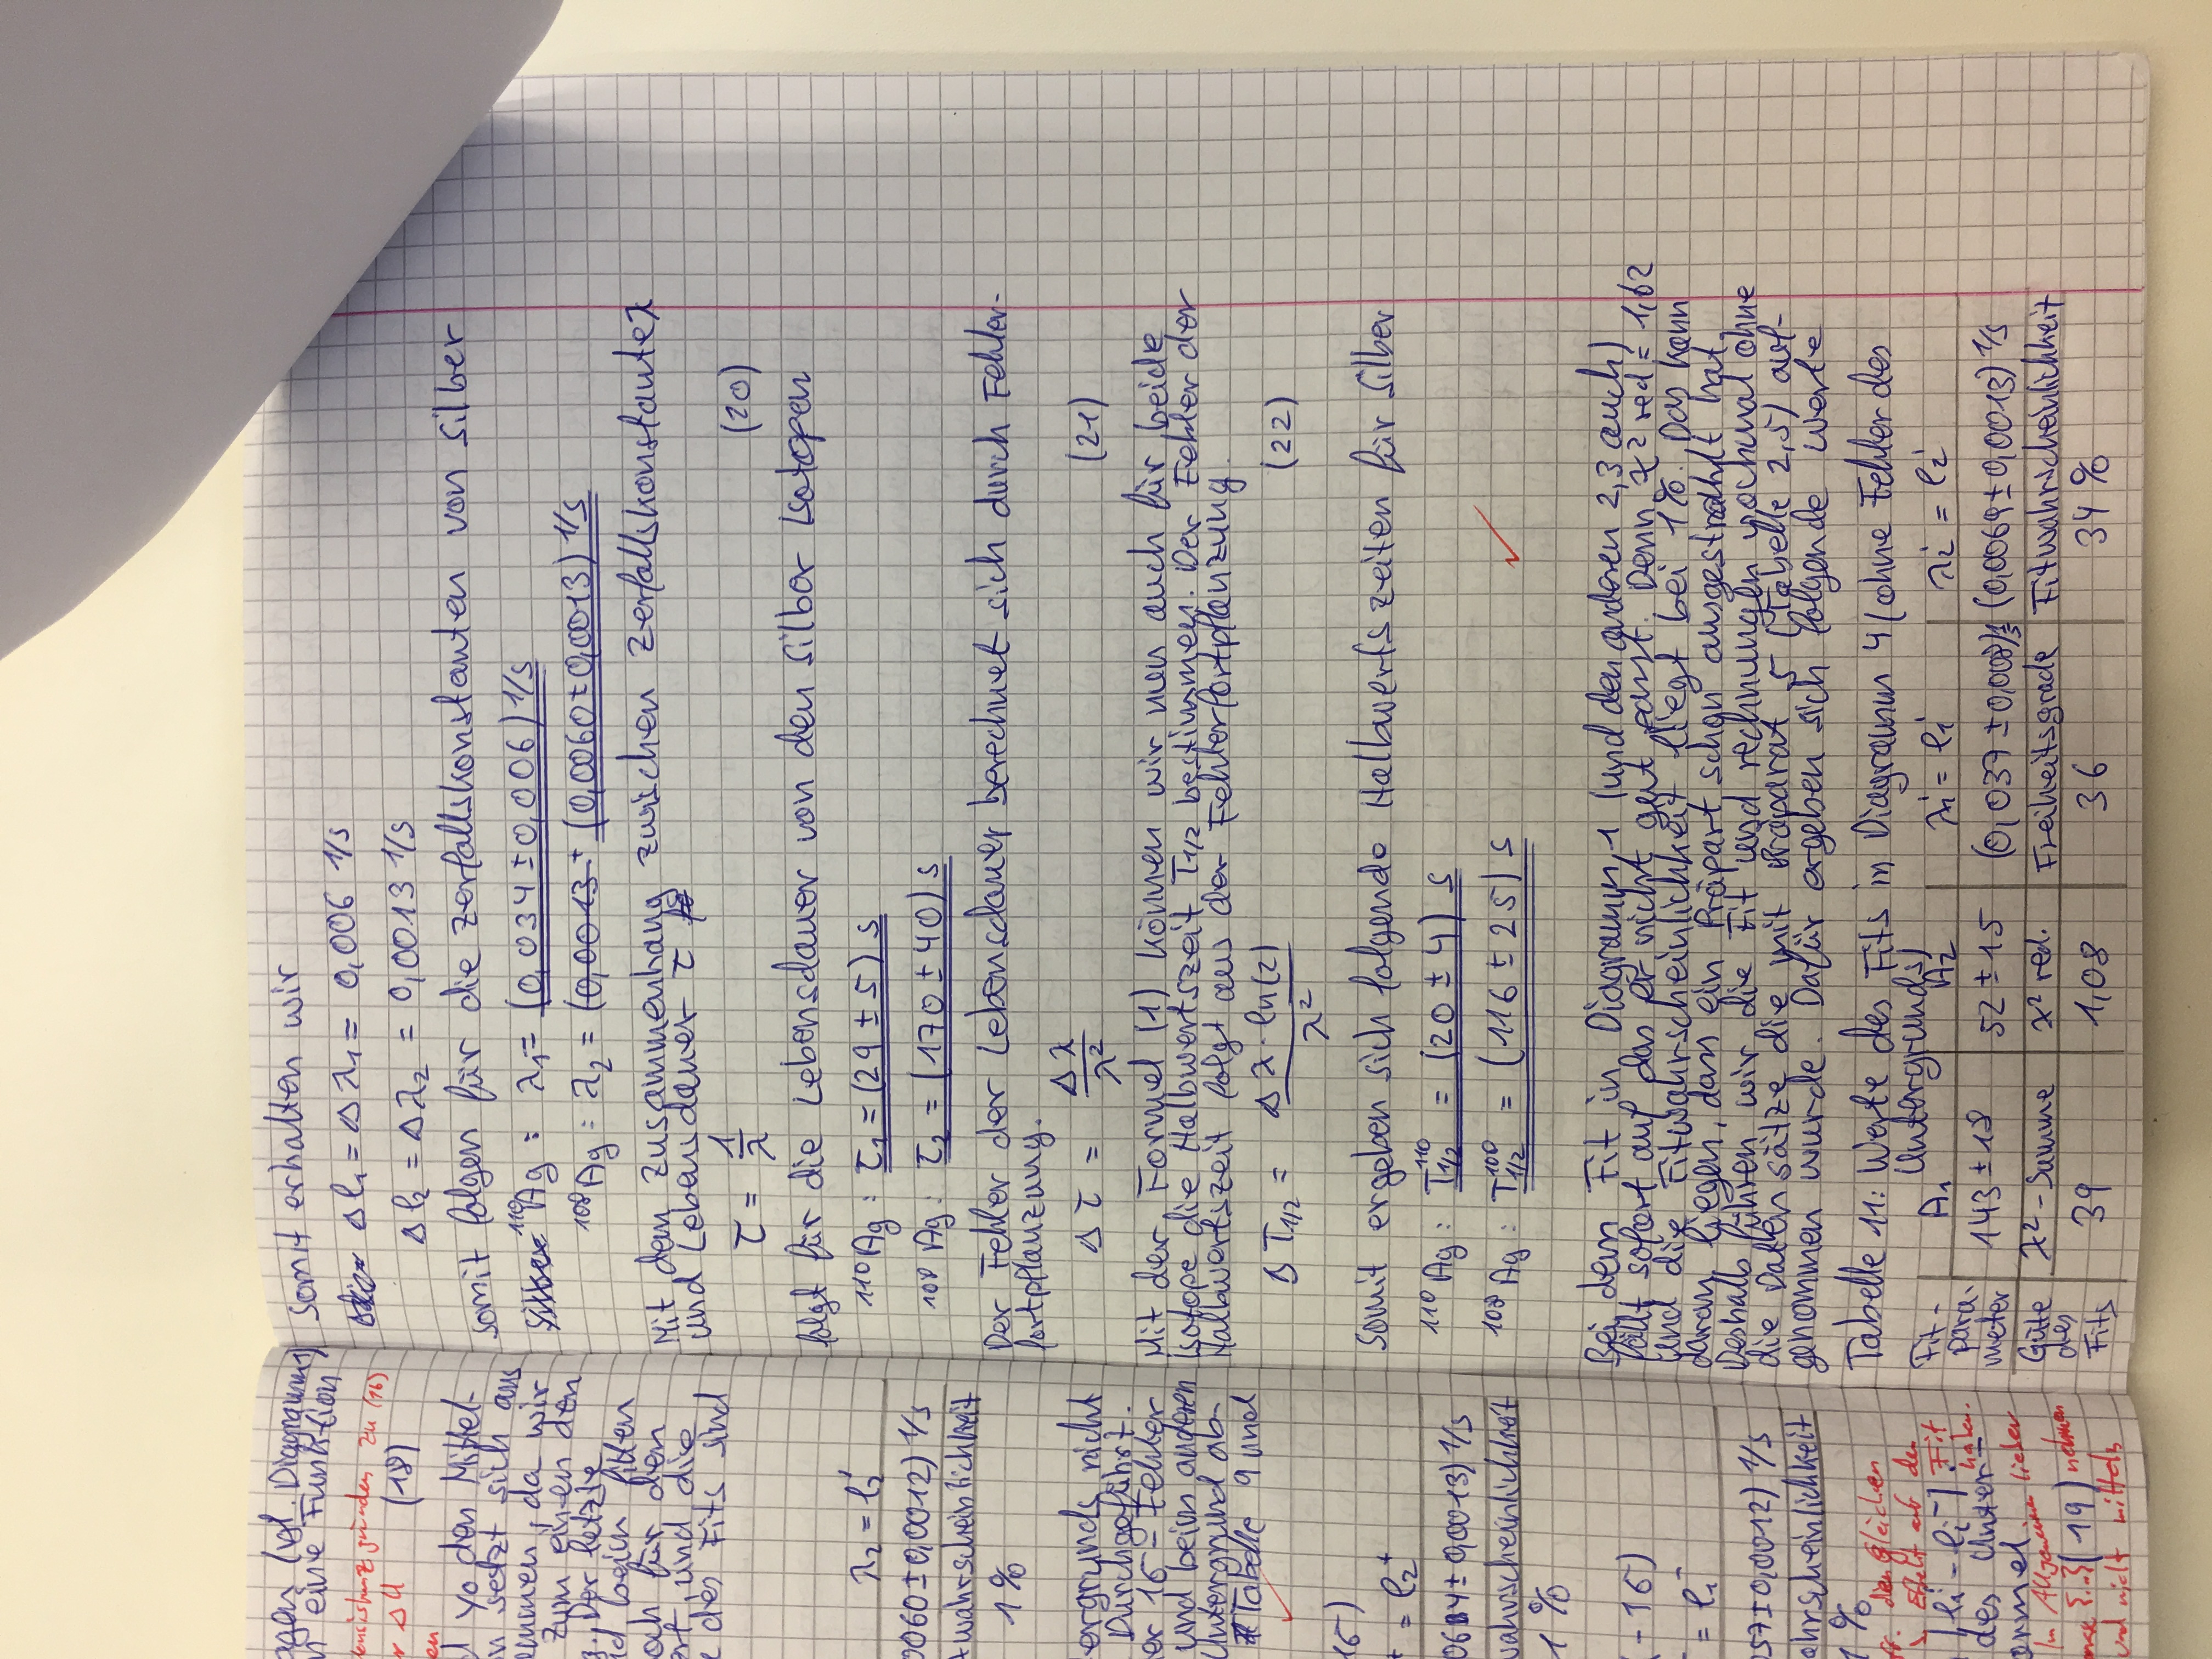 agen (vgl. Diagramm 1)
n eine Funktion
zu (16)
ΔU (18)
en
yo den Mittel-
n setzt sich aus
ammen, da wir
zum einen den
g. Der letzte
nd beim fitten
och für den
ert, und die
e des Fits sind
λ₂ = l₂'
0060±0,0012) 1/s
twahrscheinlichkeit
1%
ergrunds nicht
Durchgeführt.
er 1σ-Fehler
und beim anderen
Untergrund ab-
Tabelle 9 und
1σ)
⁺ = l₂⁺
±0,0013) 1/s
wahrscheinlichkeit
1%
(-1σ)
⁻ = l₁⁻
057±0,0012) 1/s
ahrscheinlichkeit
1%
den gleichen
Effekt auf den
Fit
haben.
des Unter-
ormel
Im Allgemeinen lieber
(19) nehmen
und nicht mittels
Somit erhalten wir
Δl₁ = Δλ₁ = 0,006 1/s
Δl₂ = Δλ₂ = 0,0013 1/s
somit folgen für die Zerfallskonstanten von Silber
Silber ¹¹⁰Ag : λ₁ = (0,034±0,006) 1/s
¹⁰⁸Ag : λ₂ = (0,0013 ± (0,0060±0,0013) 1/s
Mit dem Zusammenhang zwischen Zerfallskonstante λ
und Lebensdauer τ
τ = 1/λ (20)
folgt für die Lebensdauer von den Silber Isotopen
¹¹⁰Ag : τ₁ = (29 ± 5) s
¹⁰⁸Ag : τ₂ = (170 ± 40) s
Der Fehler der Lebensdauer berechnet sich durch Fehler-
fortpflanzung.
Δτ = Δλ/λ² (21)
Mit der Formel (1) können wir nun auch für beide
Isotope die Halbwertszeit T1/2 bestimmen. Der Fehler der
Halbwertszeit folgt aus der Fehlerfortpflanzung.
ΔT1/2 = Δλ·ln(2)/λ² (22)
Somit ergeben sich folgende Halbwertszeiten für Silber
¹¹⁰Ag : T1/2¹¹⁰ = (20 ± 4) s
¹⁰⁸Ag : T1/2¹⁰⁸ = (116 ± 25) s
Bei dem Fit in Diagramm 1 (und den anderen 2,3 auch)
fällt sofort auf das er nicht gut passt. Denn χ² red = 1,62
und die Fitwahrscheinlichkeit liegt bei 1%. Das kann
daran liegen, dass ein Präpart schon ausgestrahlt hat.
Deshalb führen wir die Fit und rechnungen nochmal ohne
die Datensätze die mit Präparat 5 (Tabelle 2,5) auf-
genommen wurde. Dafür ergeben sich folgende Werte
Tabelle 11: Werte des Fits in Diagramm 4 (ohne Fehler des
Untergrunds)
Fit-para-meter A₁ A₂ λ₁' = l₁' λ₂' = l₂'
143±18 52±15 (0,037±0,008) 1/s (0,0069±0,0013) 1/s
Güte des Fits χ²-Summe χ² red. Freiheitsgrade Fitwahrscheinlichkeit
39 1,08 36 34%